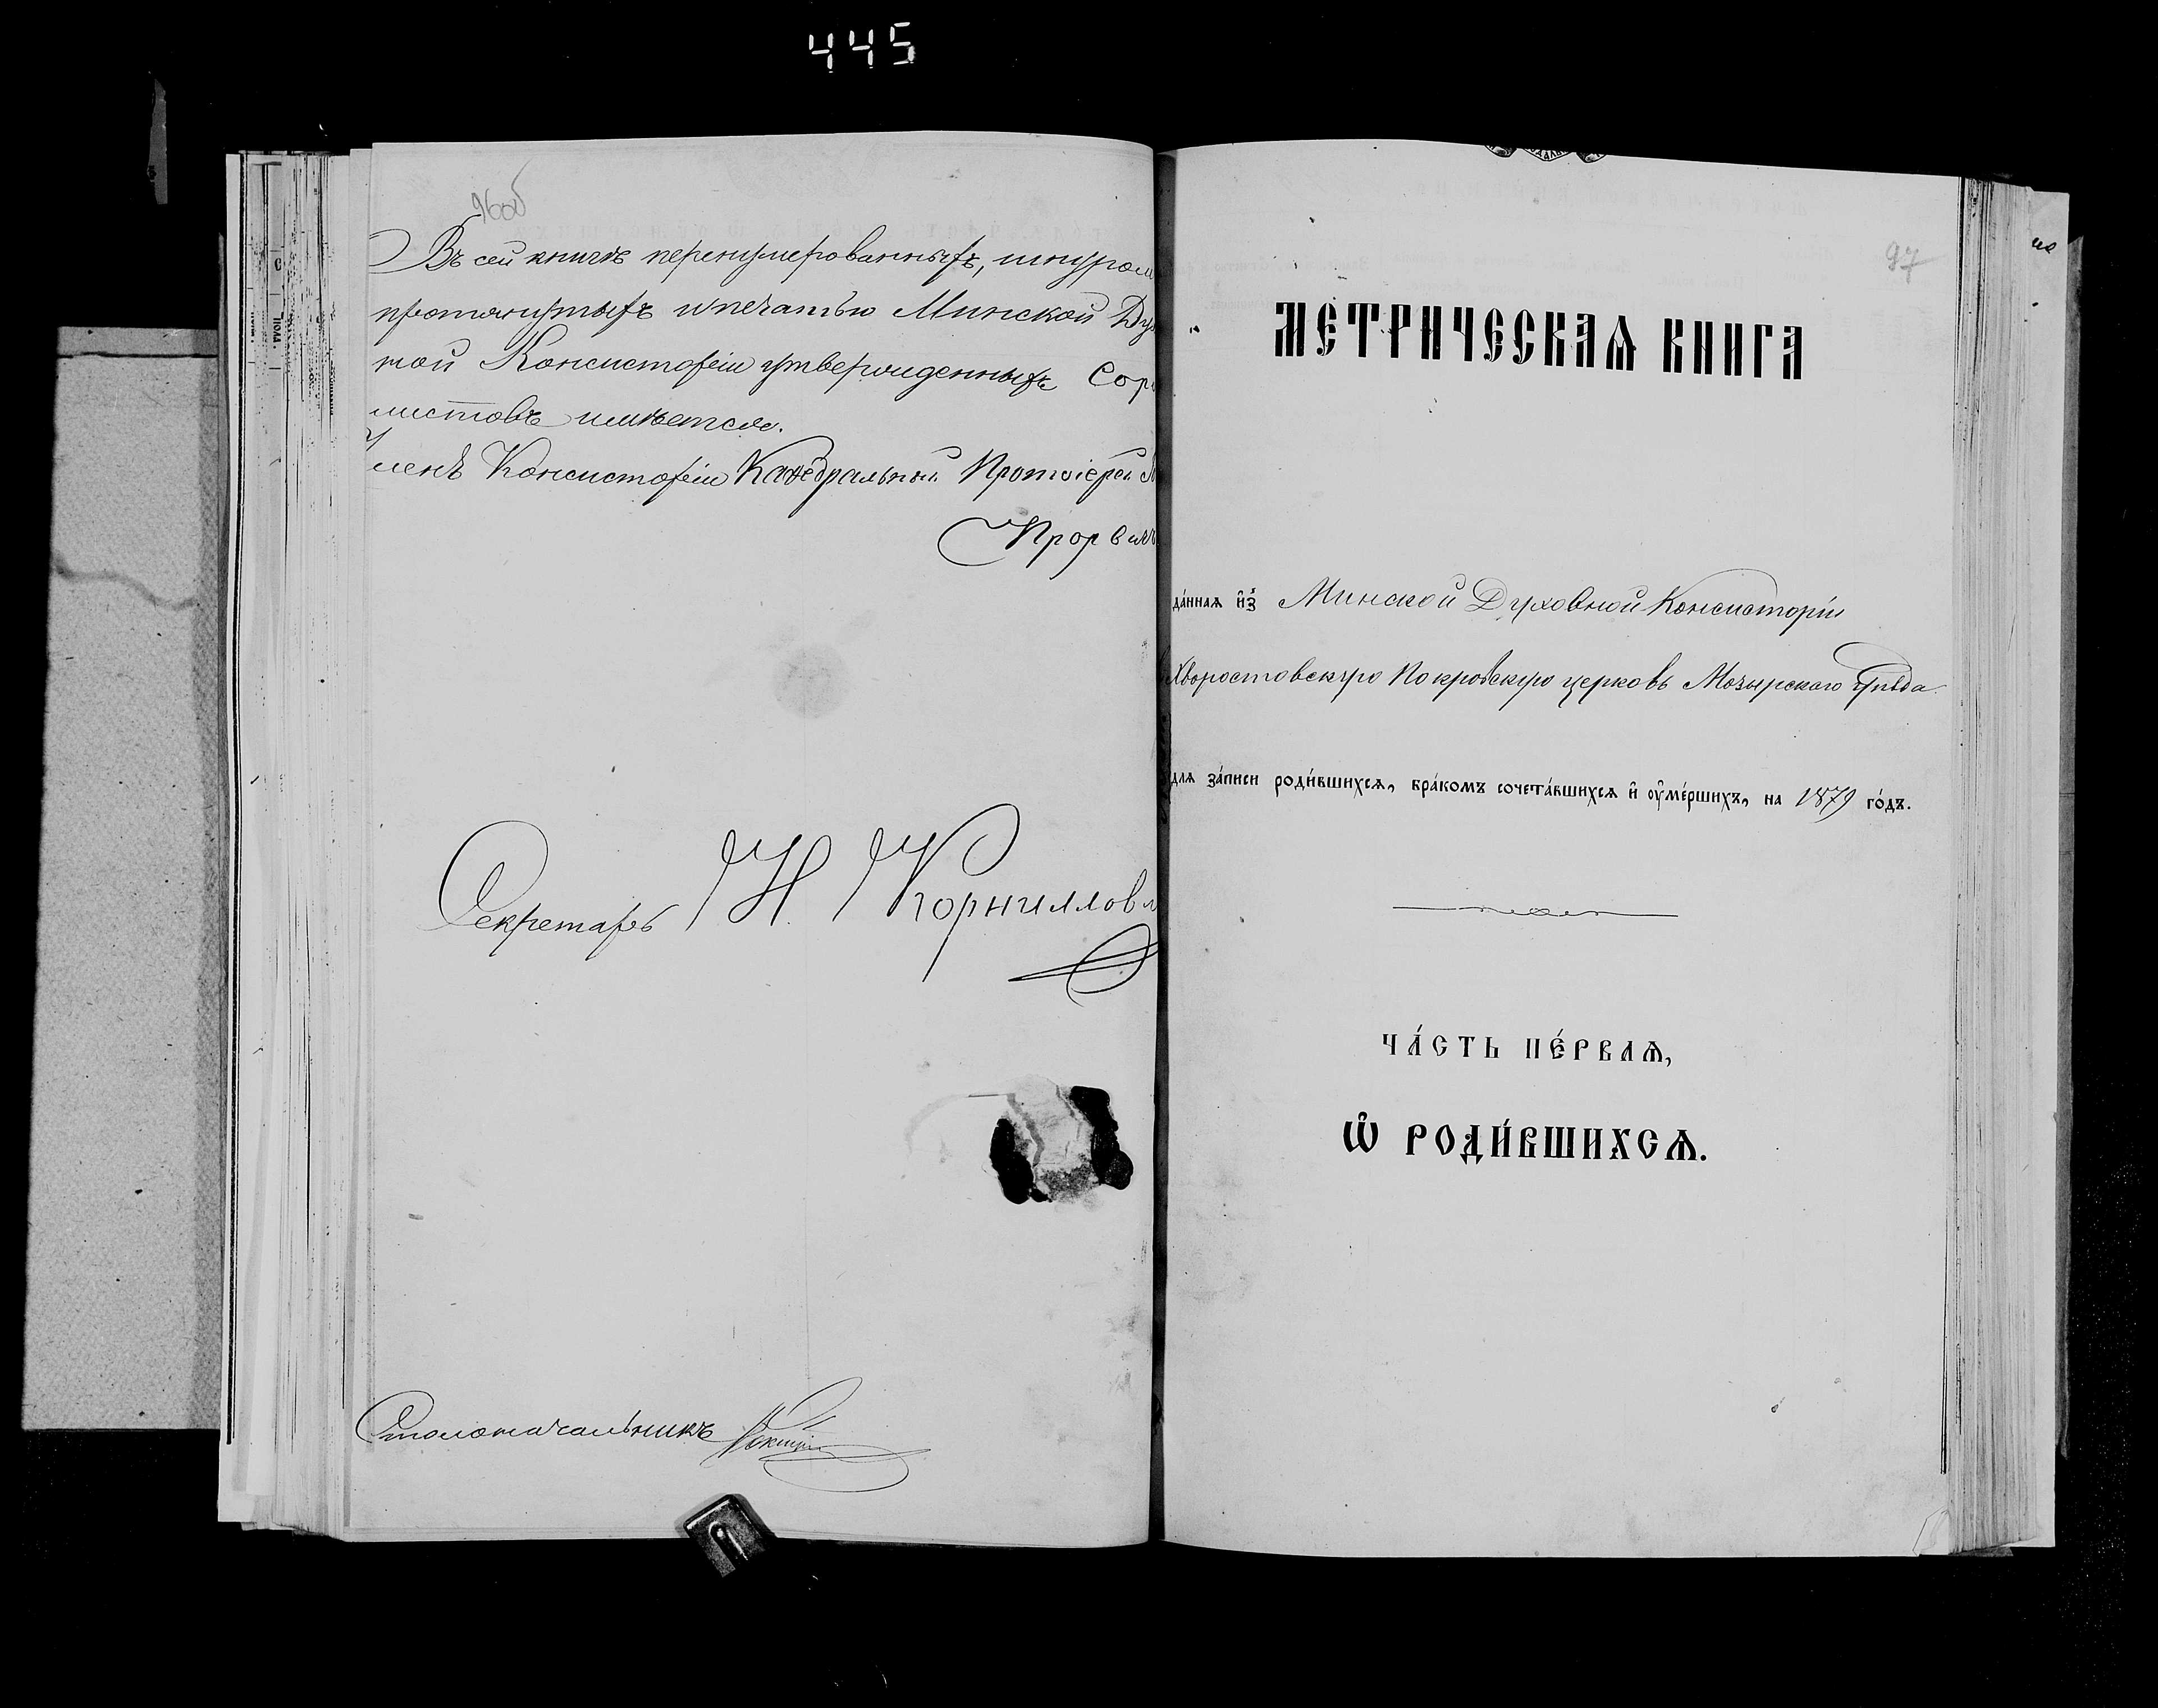 445
96об
Въ сей книгѣ перенумерованныхъ, шнуром
протянутыхъ и печатью Минской Ду
ной Консисторіи утвержденныхъ Сор
листовъ имѣется.
Членъ Консисторіи Каѳедральный Протоіерей
Секретарь Н. Корнилов
Столоначальникъ
97
МЕТРИЧЕСКАѦ КНИГА
да́ннаѧ и҆з̾ Минской Духовной Консисторіи
Хворостовскую Покровскую церковь Мозырского уѣзда
для за́писи роди́вшихсѧ, бра́комъ сочета́вшихсѧ и҆ оу҆ме́ршихъ, на 1879 го́дъ.
ЧА́СТЬ ПЕ́РВАѦ,
Ѽ РОДИ́ВШИХСѦ.